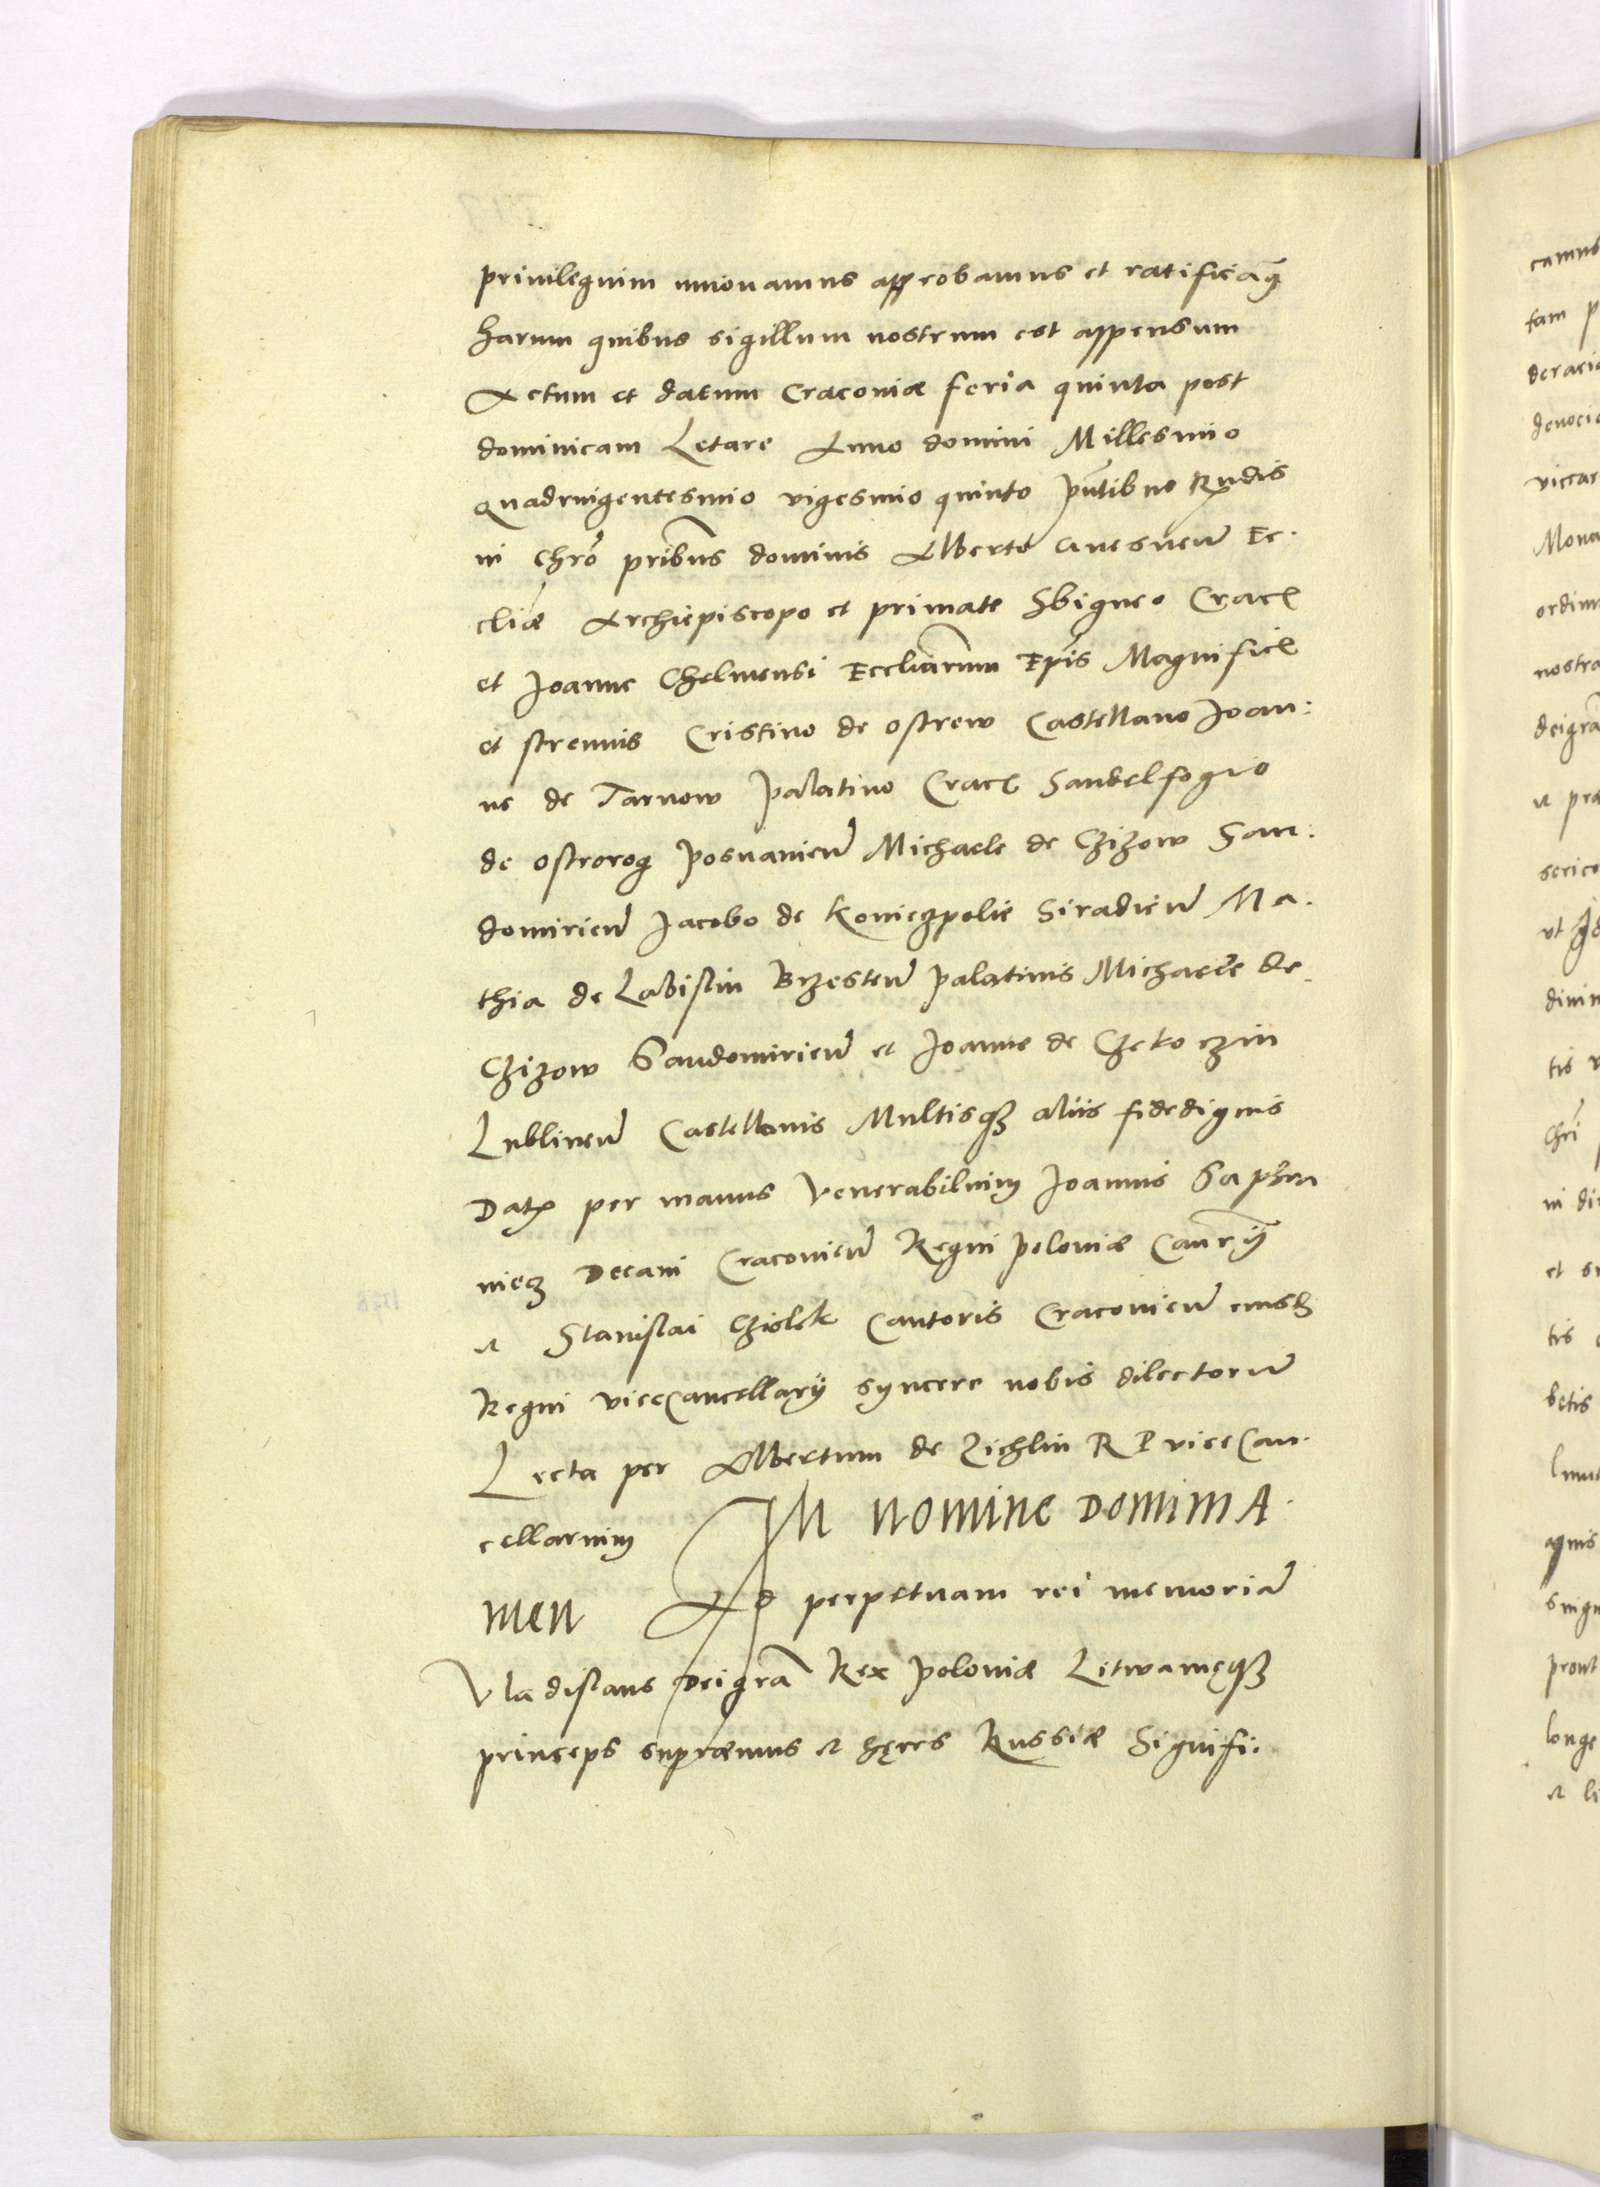 priuilegium innouamus approbamus et ratificaꝰ
harum quibus sigillum nostrum est appensum
Actum et datum Cracoviæ feria quinta post
dominicam Letare Anno domini Millesimo
Quadringentesimo vigesimo quinto pn̄tibus Rn̄dis
in Chrō prībus dominis Alberto Gnesneñ Ec.
cliæ Archiepiscopo et primate Sbigneo Crac̃
et Joanne Chelmensi Eccliārum Ep̄is Magnific̃
et strenuis Cristino de ostrow Castellano Joan:
ne de Tarnow palatino Crac̃ Sandelfogio
de ostrorog posnanieñ Michaele de Czizow San:
domirieñ Jacobo de Koniezpolie Siradieñ Ma.
thia de Labistin Brzesteñ palatinis Michaele de
Czizow Sandomirieñ et Joanne de Czekoczin
Lublineñ Castellanis Multisqꝫ aliis fidedignis
Datꝭ per manus Venerabilium Joannis Saphra
niecz Decani Cracovieñ Regni poloniæ Canr̃ij
et Stanislai Cziolek Cantoris Cracovieñ eiusdꝫ
Regni viceCancellarij syncere nobis dilectorum̃
Lecta per Albertum de Zichlin R P viceCan.
cellarium In nomine Domini A.
men Ad perpetuam rei memoriam̃
Vladislaus Dei grā Rex poloniæ Litwanięqꝫ
princeps supræmus et hęres Russiæ Signifi:
camus
tam p
deracio
ordinu
nostra
deigrā
et præ
serico
diuin
tis
Chrī
in di
tis
betis
prout
longe
et li